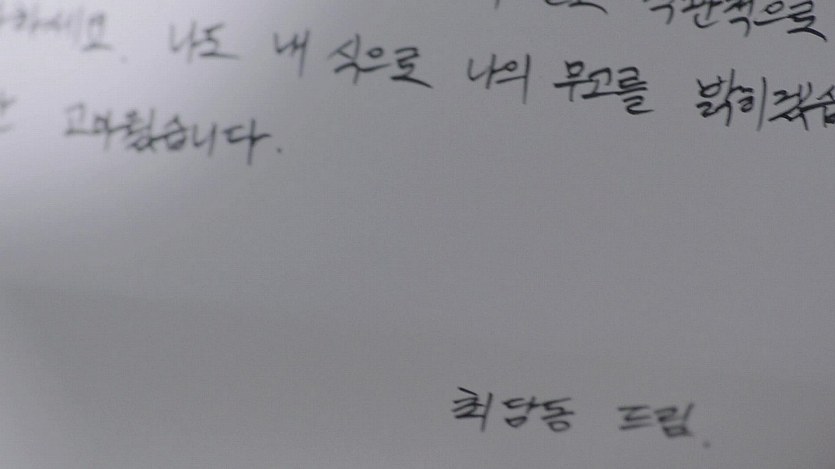 객관적으로
나도 내 식으로 나의 무고를 밝히겠습
고마웠습니다.
최담동 드림.